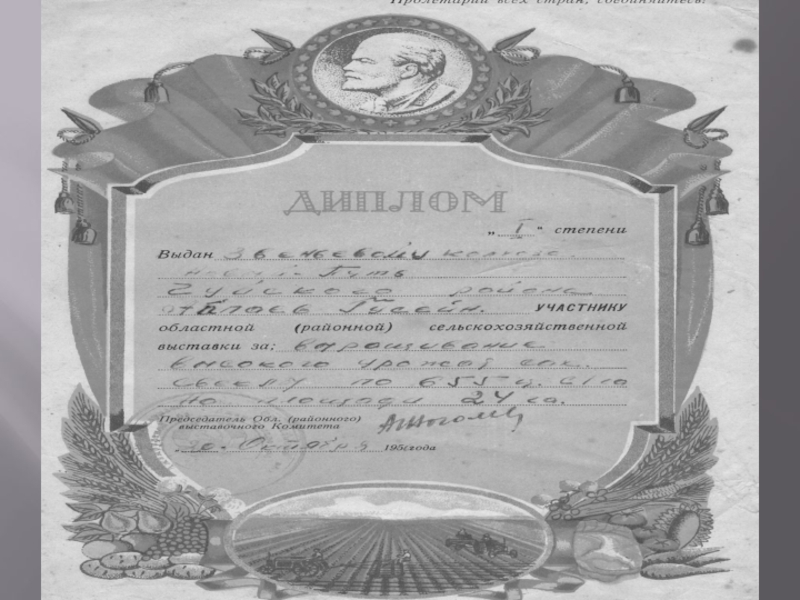 Пролетарии всех стран, соединяйтесь!
ДИПЛОМ
„ I “ степени
Выдан Звеньевому колхоза
Путь
Чуйского района
Гусейн. УЧАСТНИКУ
областной (районной) сельскохозяйственной
выставки за: выращивание
высокого урожая сах.
свеклы по 655 ц. с 1 га
на площади 24 га.
Председатель Обл. (районного)
выставочного Комитета
Октября 195 года